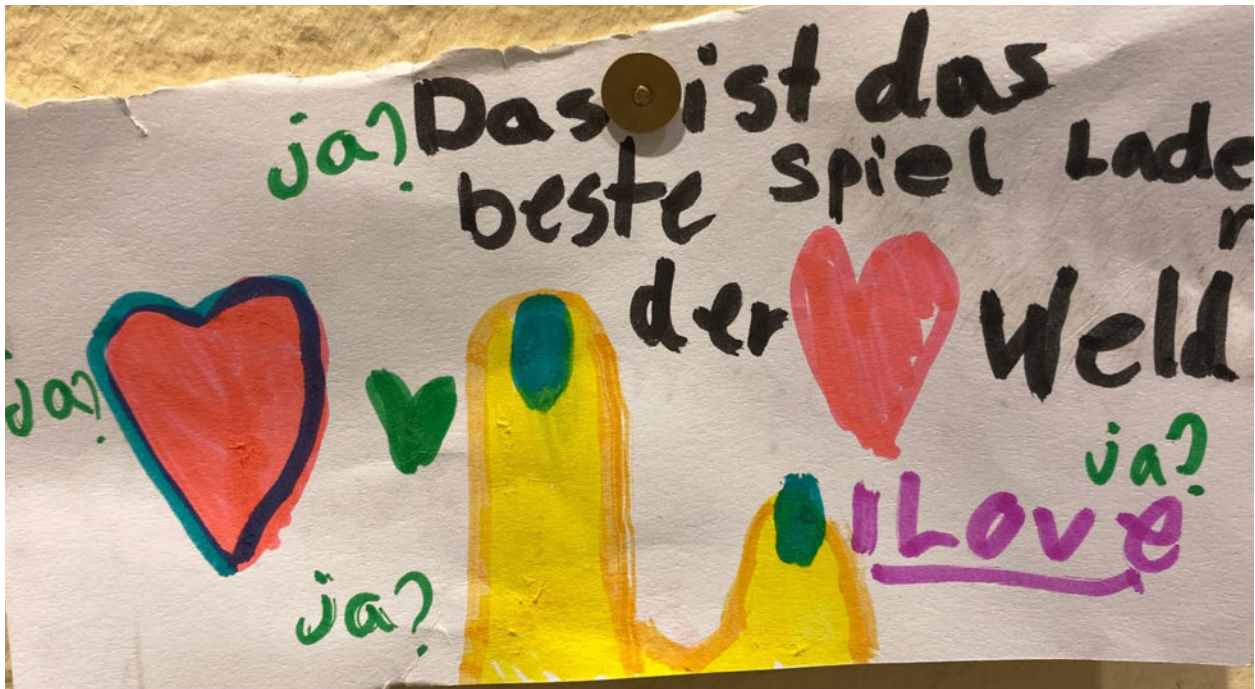 ja? Das ist das
beste spiel Lade
r
der Weld
ja?
ja?
I Love
ja?